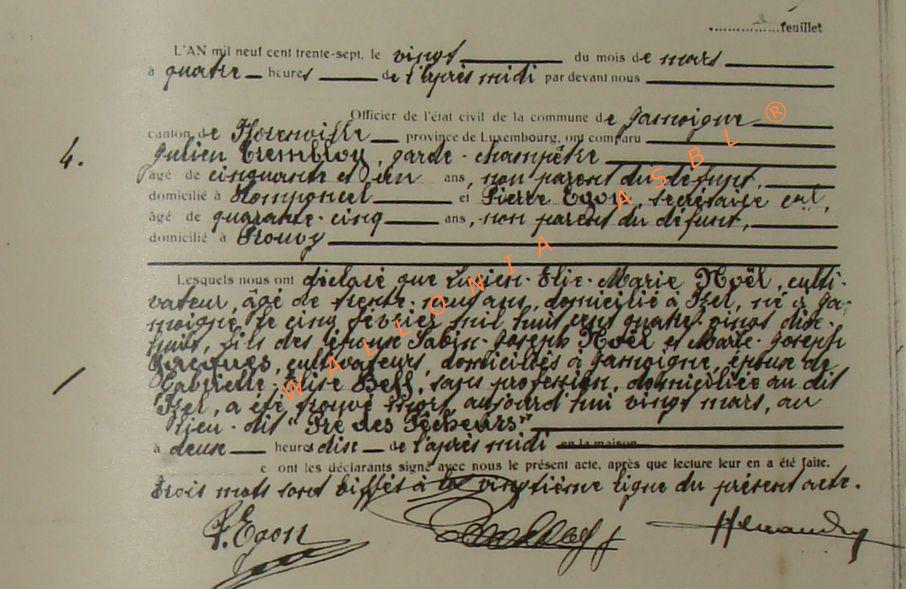 feuillet
L'AN mil neuf cent trente-sept, le vingt du mois de mars
à quatre heures de l'après midi par devant nous
Officier de l'état civil de la commune de Jamoigne
canton de Florenville province de Luxembourg, ont comparu
4. Julien Trembloy, garde-champêtre
âgé de cinquante et un ans, non parent du défunt,
domicilié à et Pierre Egon, secrétaire cal,
âgé de quarante-cinq ans, non parent du défunt,
domicilié à Prouvy
Lesquels nous ont déclaré que Lucien-Elie-Marie Noël, culti-
vateur, âgé de trente-neuf ans, domicilié à Izel, né à Ja-
moigne, le cinq février mil huit cent quatre-vingt dix-
huit, fils des époux Sabin-Joseph Noël et Marie-Joseph
cultivateurs, domiciliés à Jamoigne, époux de
Gabrielle-Elise sans profession, domiciliée au dit
Izel, a été trouvé mort aujourd'hui vingt mars, au
lieu-dit "Pré des Pêcheurs"
à deux heures dix de l'après midi en la maison
e ont les déclarants signé avec nous le présent acte, après que lecture leur en a été faite.
Trois mots sont biffés à la vingtième ligne du présent acte.
P. Egon
WALLONIA ASBL ®